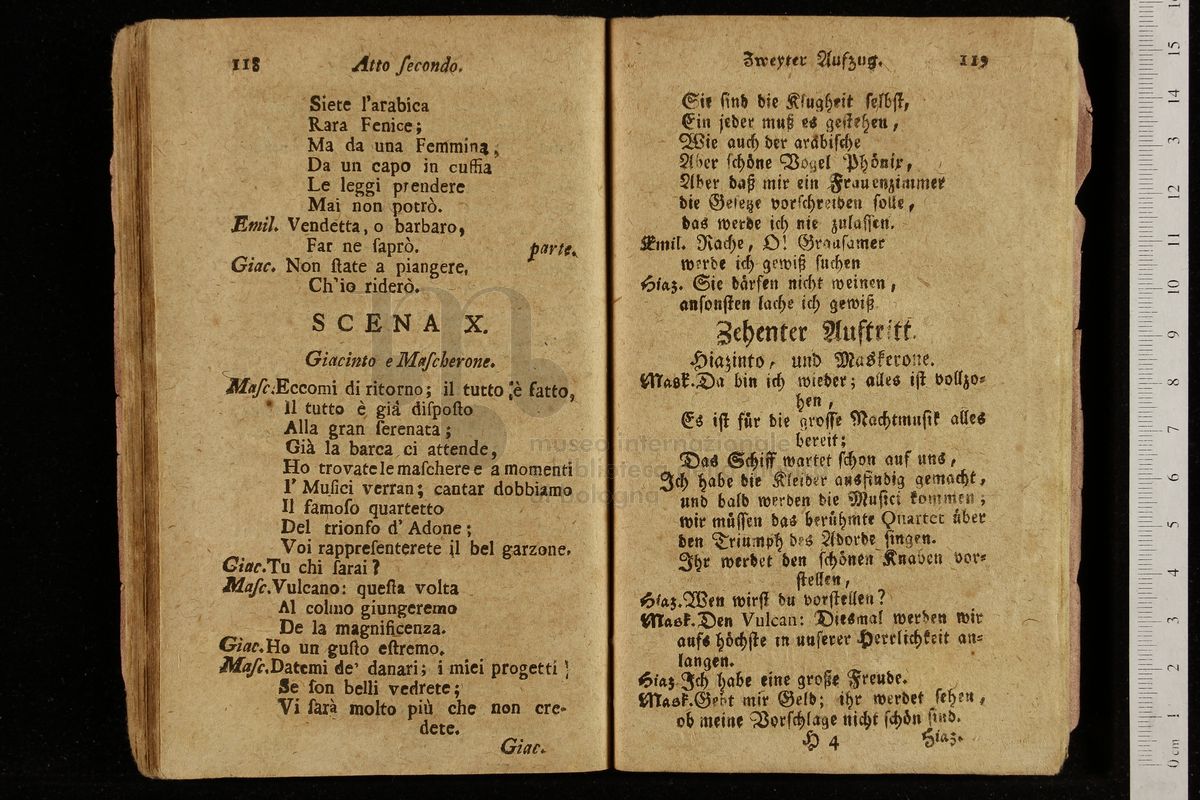 118 Atto ſecondo.
Siete l'arabica
Rara Fenice;
Ma da una Femmina,
Da un capo in cuffia
Le leggi prendere
Mai non potrò.
Emil. Vendetta, o barbaro,
Far ne ſaprò. parte.
Giac. Non ſtate a piangere,
Ch'io riderò.
SCENA X.
Giacinto e Maſcherone.
Maſc. Eccomi di ritorno; il tutto è fatto,
Il tutto è già diſpoſto
Alla gran ſerenata;
Già la barca ci attende,
Ho trovate le maſchere e a momenti
I' Muſici verran; cantar dobbiamo
Il famoſo quartetto
Del trionfo d' Adone;
Voi rappreſenterete il bel garzone.
Giac. Tu chi ſarai?
Maſc. Vulcano: queſta volta
Al colmo giungeremo
De la magnificenza.
Giac. Ho un guſto eſtremo.
Maſc. Datemi de' danari; i miei progetti
Se ſon belli vedrete;
Vi ſarà molto più che non cre-
dete.
Giac.
Zweyter Aufzug. 119
Sie ſind die Klugheit ſelbſt,
Ein jeder muß es geſtehen,
Wie auch der arabiſche
Aber ſchöne Vogel Phönix,
Aber daß mir ein Frauenzimmer
die Geſetze vorſchreiben ſolle,
das werde ich nie zulaſſen.
Emil. Rache, O! Grauſamer
werde ich gewiß ſuchen
Hiaz. Sie därfen nicht weinen,
anſonſten lache ich gewiß
Zehenter Auftritt.
Hiazinto, und Maskerone.
Mask. Da bin ich wieder; alles iſt vollzo-
hen,
Es iſt für die groſſe Nachtmuſik alles
bereit;
Das Schiff wartet ſchon auf uns,
Ich habe die Kleider ausfindig gemacht,
und bald werden die Muſici kommen;
wir müſſen das berühmte Quartet über
den Triumph des Adorde ſingen.
Ihr werdet den ſchönen Knaben vor-
ſtellen,
Hiaz. Wen wirſt du vorſtellen?
Mask. Den Vulcan: Diesmal werden wir
aufs höchſte in unſerer Herrlichkeit an-
langen.
Hiaz Ich habe eine große Freude.
Mask. Gebt mir Geld; ihr werdet ſehen,
ob meine Vorſchlage nicht ſchön ſind.
H 4 Hiaz.
museo internazionale
biblioteca
bologna